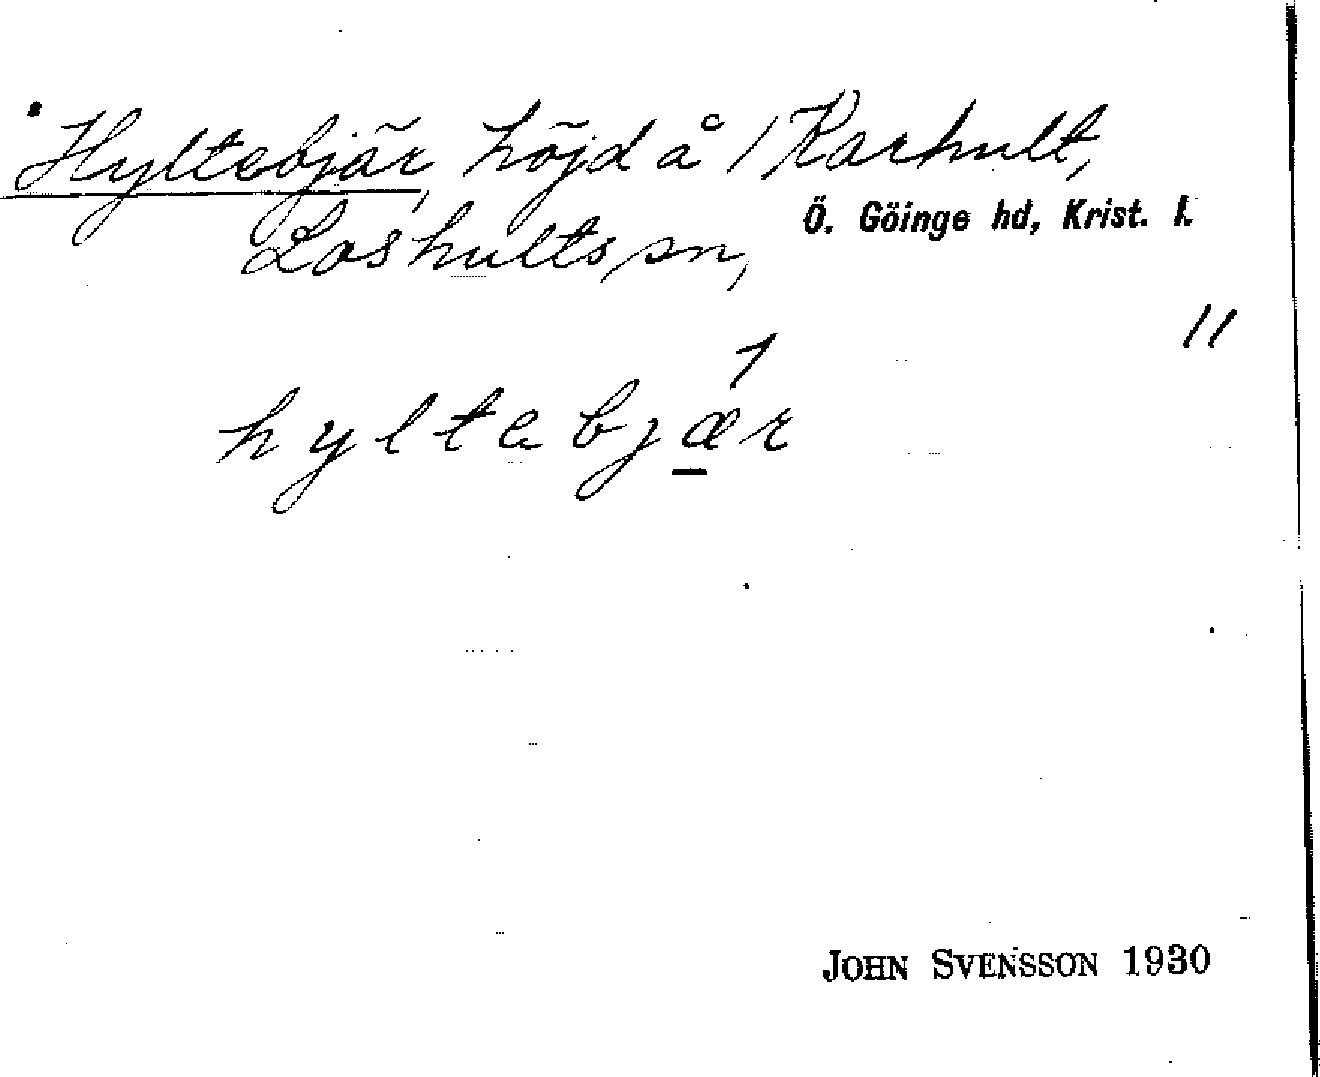 Hyltebjär, höjd å 1 Karhult,
Ö. Göinge hd, Krist. l.
Loshults sn,
11
hyltebjær
JOHN SVENSSON 1930